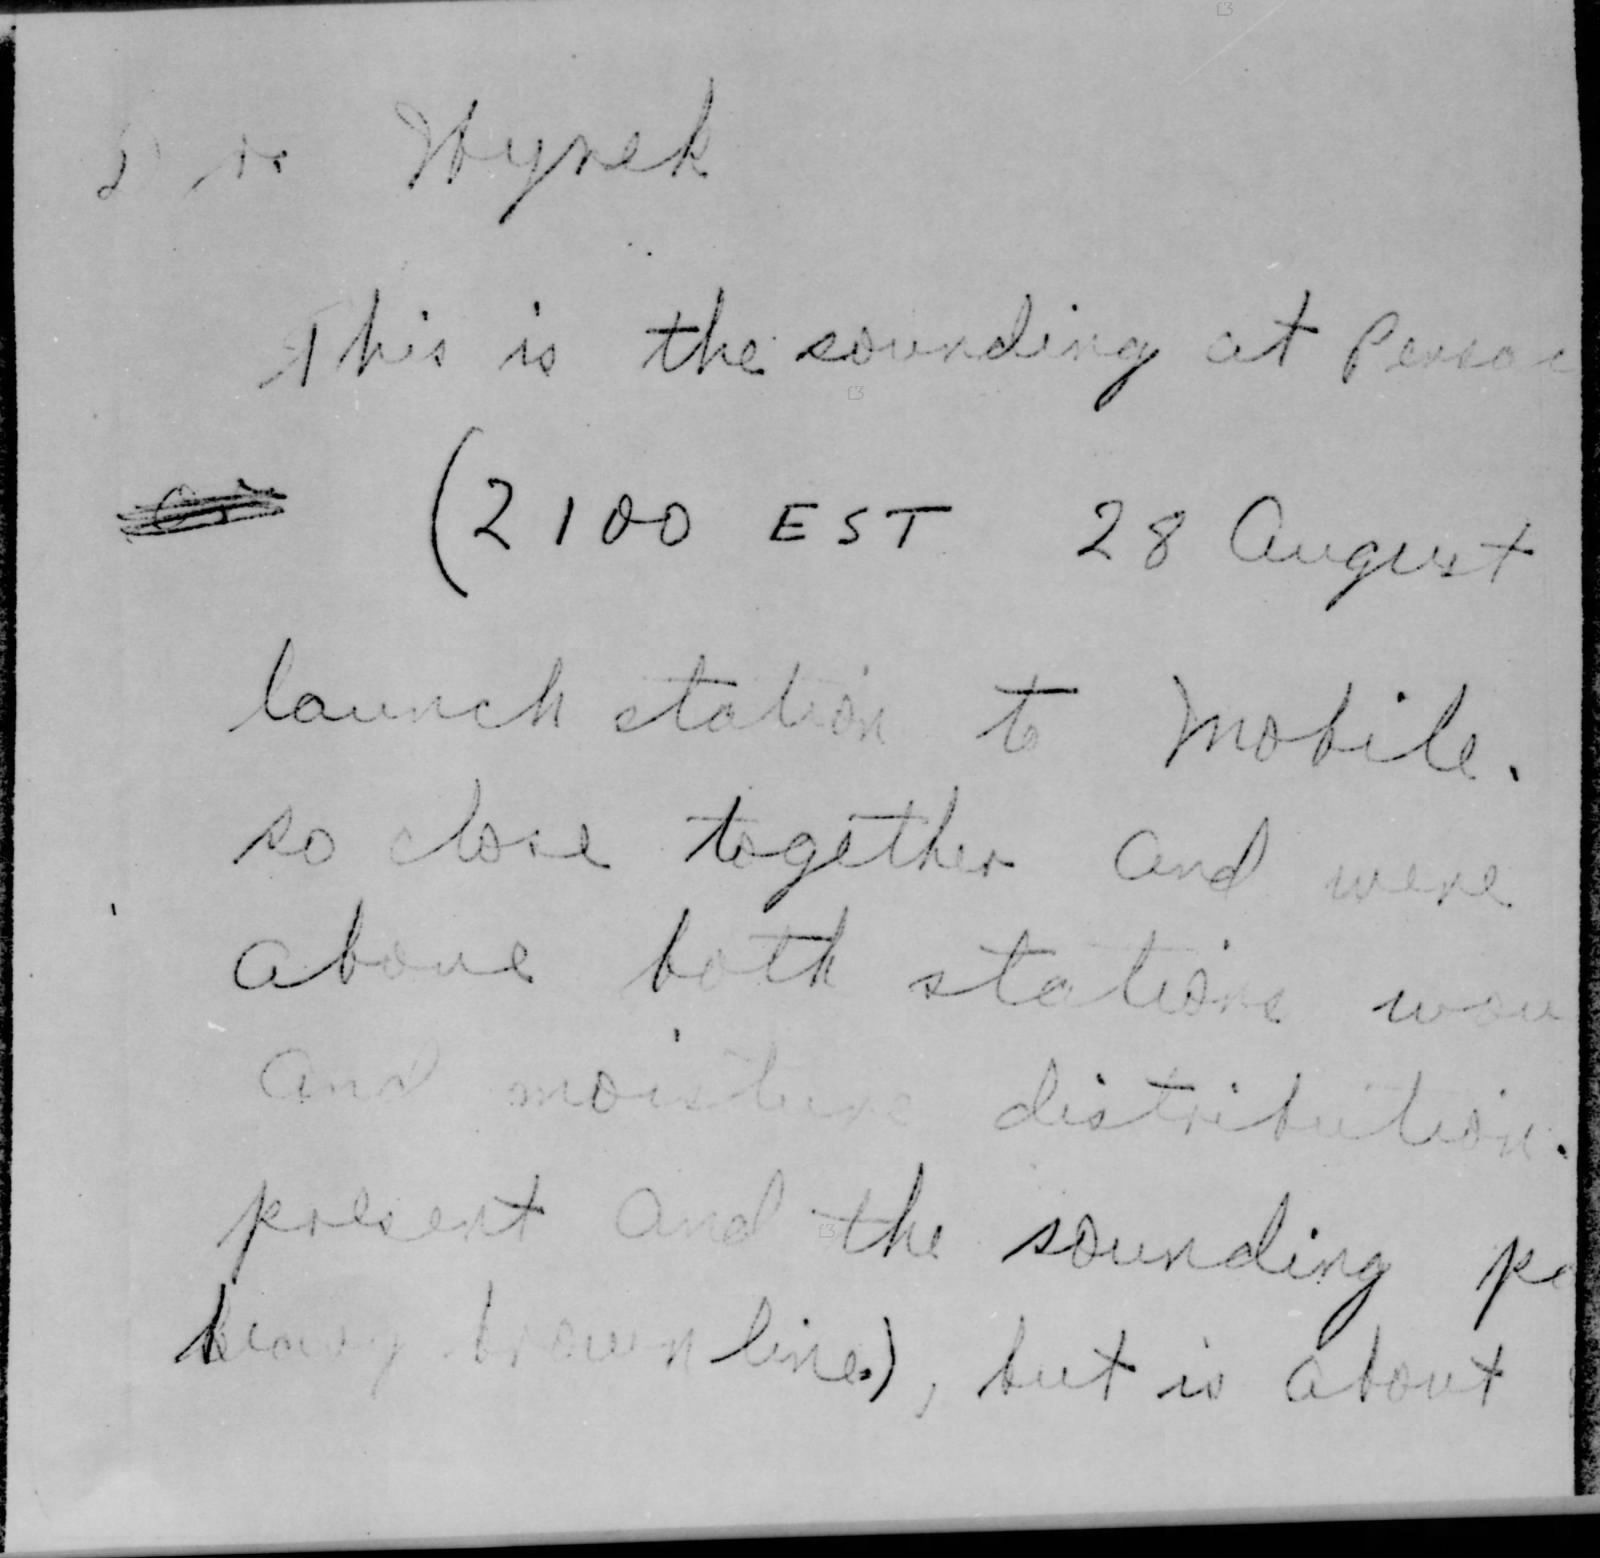 Dr Hynek
This is the sounding at Pensac
(2100 EST 28 August
launch station to Mobile.
so close together and were
above both stations wou
and moisture distribution.
present and the sounding pe
heavy brown line), but is about